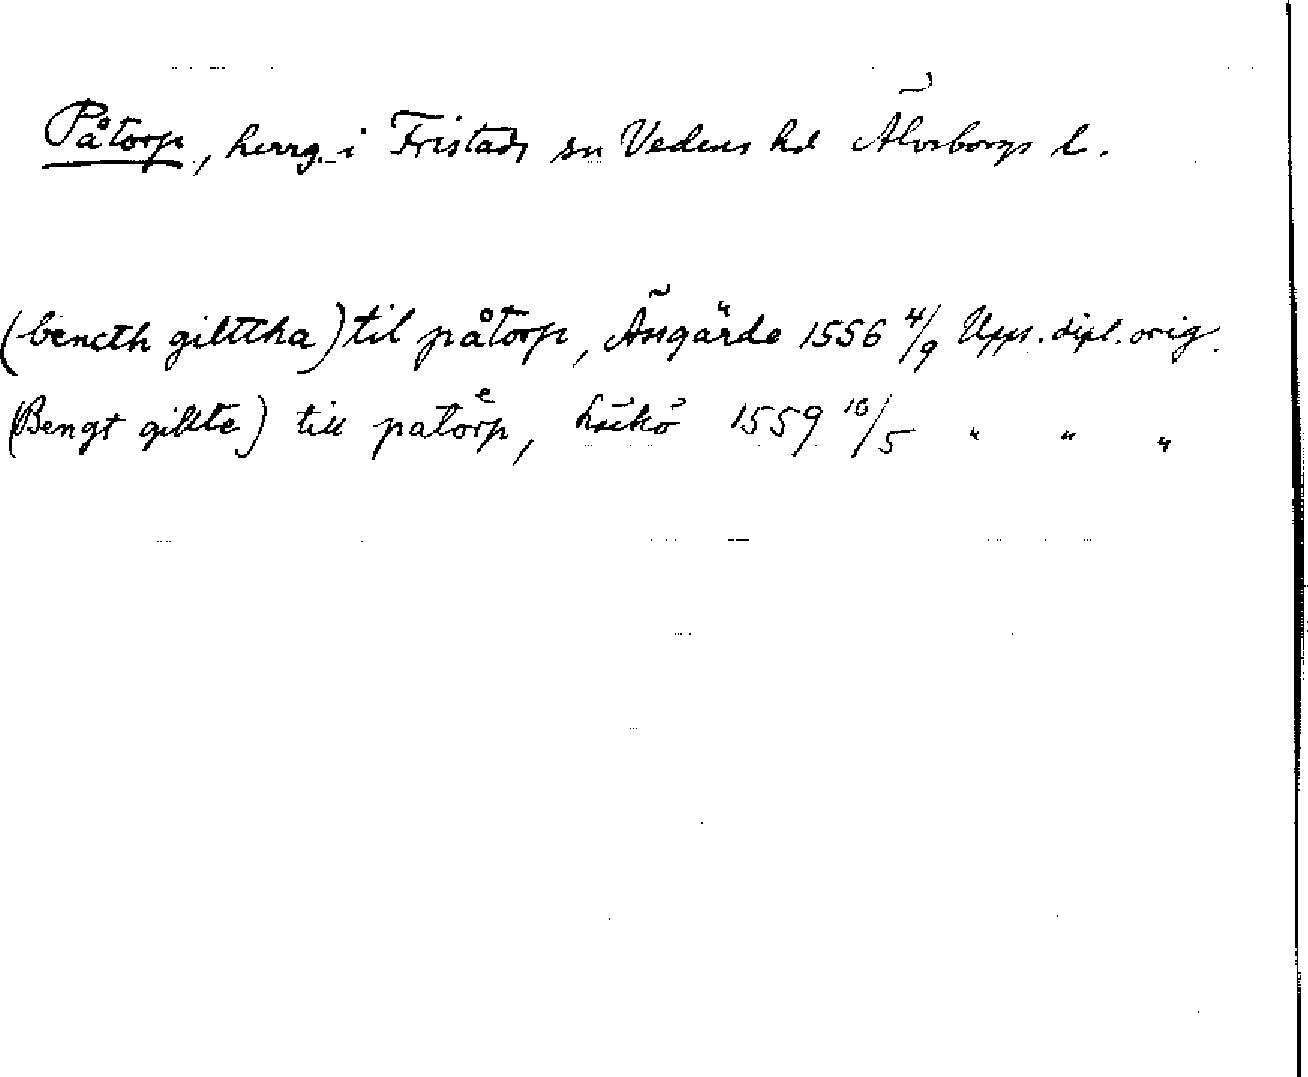 Påtorp, herrg. i Fristads sn Vedens hd Älvsborgs l.
(bencth gilttha) til påtorp, Äsgärde 1556 4/9 Upps. dipl. orig.
(Bengt gillte) till patoͤrp, Läckö 1559 10/5 " " "